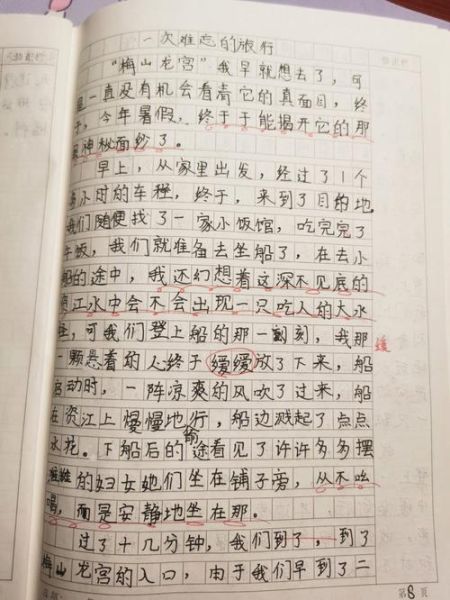 一次难忘的旅行
“梅山龙宫”我早就想去了,可
是一直没有机会看清它的真面目,终
于,今年暑假,终于于能揭开它的那
层神秘面纱了。
早上,从家里出发,经过了1个
多小时的车程,终于,来到了目的地,
我们随便找了一家小饭馆,吃完完了
午饭,我们就准备去坐船了,在去小
船的途中,我还幻想着这深不见底的
资江水中会不会出现一只吃人的大水
,可我们登上船的那一刻刻,我那
一颗悬着的心终于缓缓放了下来,船
启动时,一阵凉爽的风吹了过来,船
在资江上慢慢地行,船边溅起了点点
水花。下船后的前途看见了许许多多摆
摊的妇女她们坐在铺子旁,从不吆
喝,而是安静地坐在那。
过了十几分钟,我们到了,到了
梅山龙宫的入口,由于我们早到了二
缓
第8页